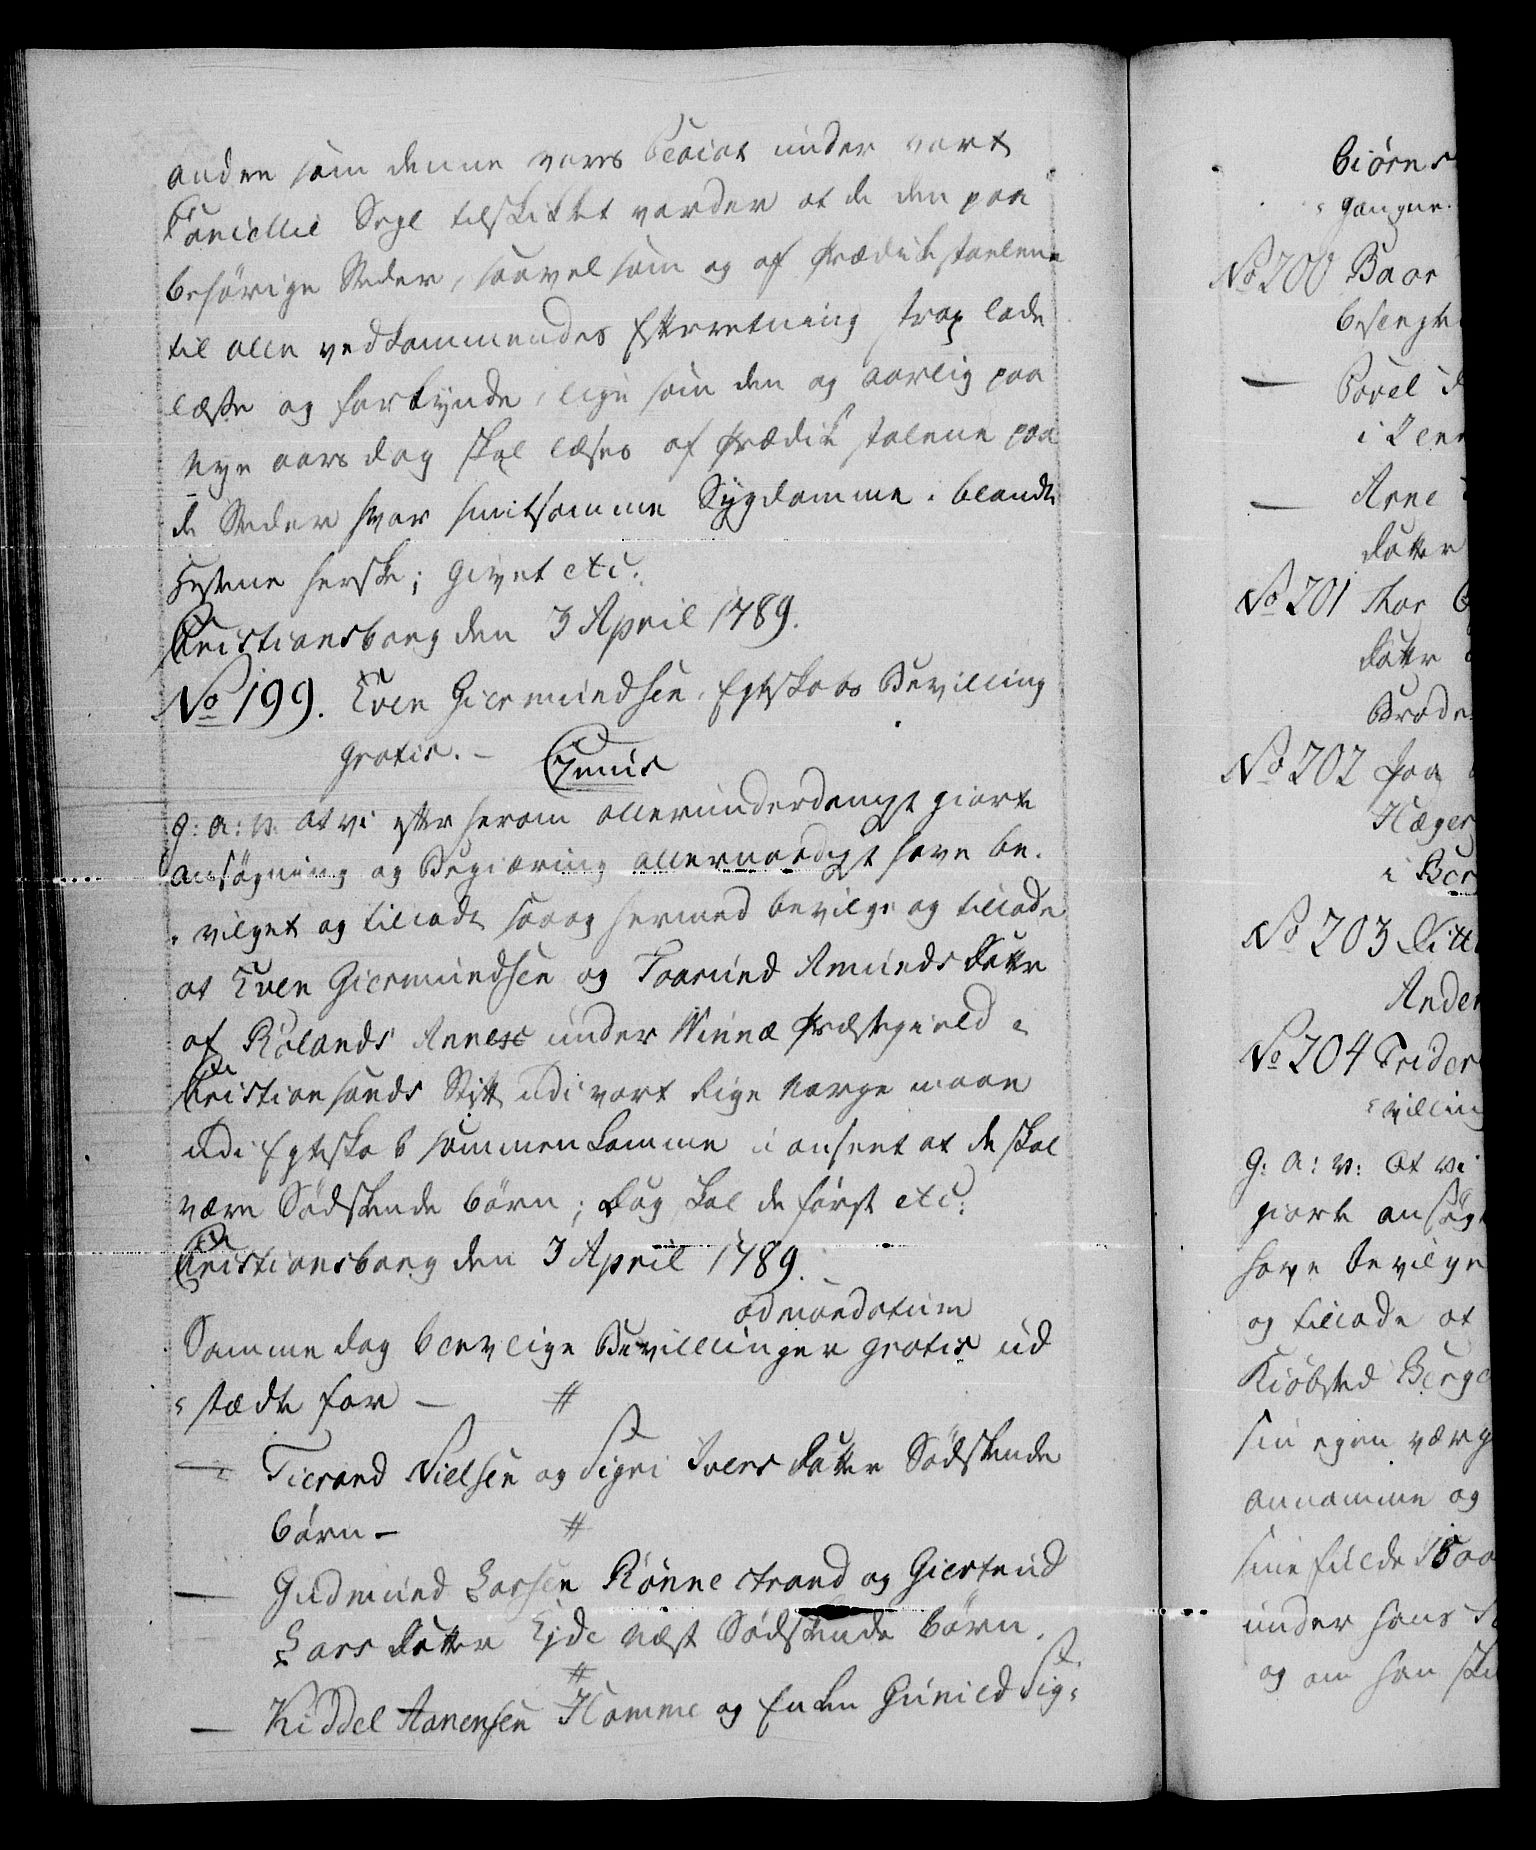 andre som denne vores Placat under vort
Cancellie Segl tilskikket vorder at de den paa
behørige Steder, saavel som og af Prædikestoelene
til alle vedkommendes Efterretning strax lade
læse og forkynde, lige som den og aarlig paa
nye aars dag skal læses af Prædike stolene paa
de Steder hvor smitsomme Sygdomme iblandt
Hestene herske; givet etc:
Christiansborg den 3 April 1789.
No 199. Even Giermundsen, Egteskabs Bevilling
gratis. - Genus
g: a: v: at vi efter herom allerunderdanigst giorte
ansøgning og Begiæring allernaadigst have be-
vilget og tilladt saa og hermed bevilge og tillade
at Even Giermundsen og Taarund Amunds datter
af Rølands Annex under Vinnæ Præstegield i
Christiansands Stift udi vort Rige Norge maae
udi Egteskab sammenkomme i anseet at de skal
være Sødskende børn; dog skal de først etc:
Christiansborg den 3 April 1789.
ad mandatum
Samme dag blev lige Bevillinger gratis ud
stædt for - #
- Tierand Nielsen og Sigri Ivers datter Sødskende
børn - #
- Gudmund Larsen Rønnestrand og Giertrud
Lars datter Eide næst Sødskende børn.
#
- Kiddel Aanensen Homme og Enken Gunild Sig-
biørns
gangne.
No 200 Baar
besengt
- Povel
i
- Arne
datter
No 201 Thor
datter
Brode
No 202 Paa
Hæger
i Ber
No 203 Ditt
Ander
No 204 Frider
villing
g: a: v: At vi
giorte ansøg
have bevilge
og tillade at
Kiøbsted Berge
sin egen værg
annamme og
sine fulde Taa
under hans
og om han ski